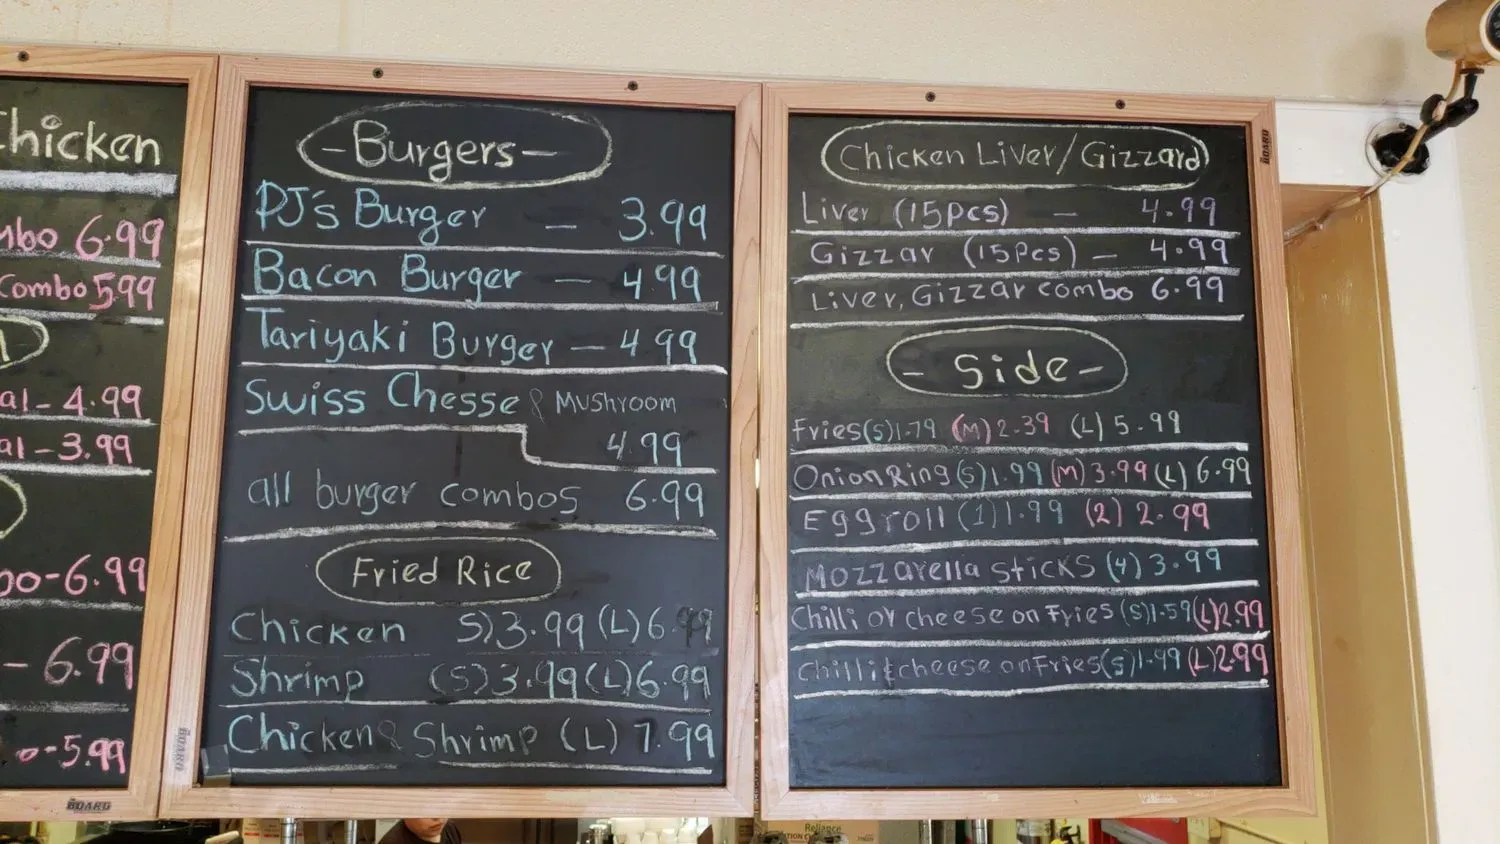 Chicken
mbo 6.99
Combo 5.99
al - 4.99
al - 3.99
bo - 6.99
- 6.99
o - 5.99
BOARD
- Burgers -
PJ's Burger - 3.99
Bacon Burger - 4.99
Tariyaki Burger - 4.99
Swiss Chesse & Mushroom
4.99
all burger combos 6.99
Fried Rice
Chicken S) 3.99 (L) 6.99
Shrimp (S) 3.99 (L) 6.99
Chicken & Shrimp (L) 7.99
BOARD
Chicken Liver/Gizzard
Liver (15pcs) - 4.99
Gizzar (15pcs) - 4.99
Liver, Gizzar combo 6.99
- Side -
Fries (S) 1.79 (M) 2.39 (L) 5.99
Onion Ring (S) 1.99 (M) 3.99 (L) 6.99
Egg roll (1) 1.99 (2) 2.99
Mozzarella sticks (4) 3.99
Chilli or cheese on Fries (S) 1.59 (L) 2.99
Chilli & cheese on Fries (S) 1.99 (L) 2.99
BOARD
Reliance